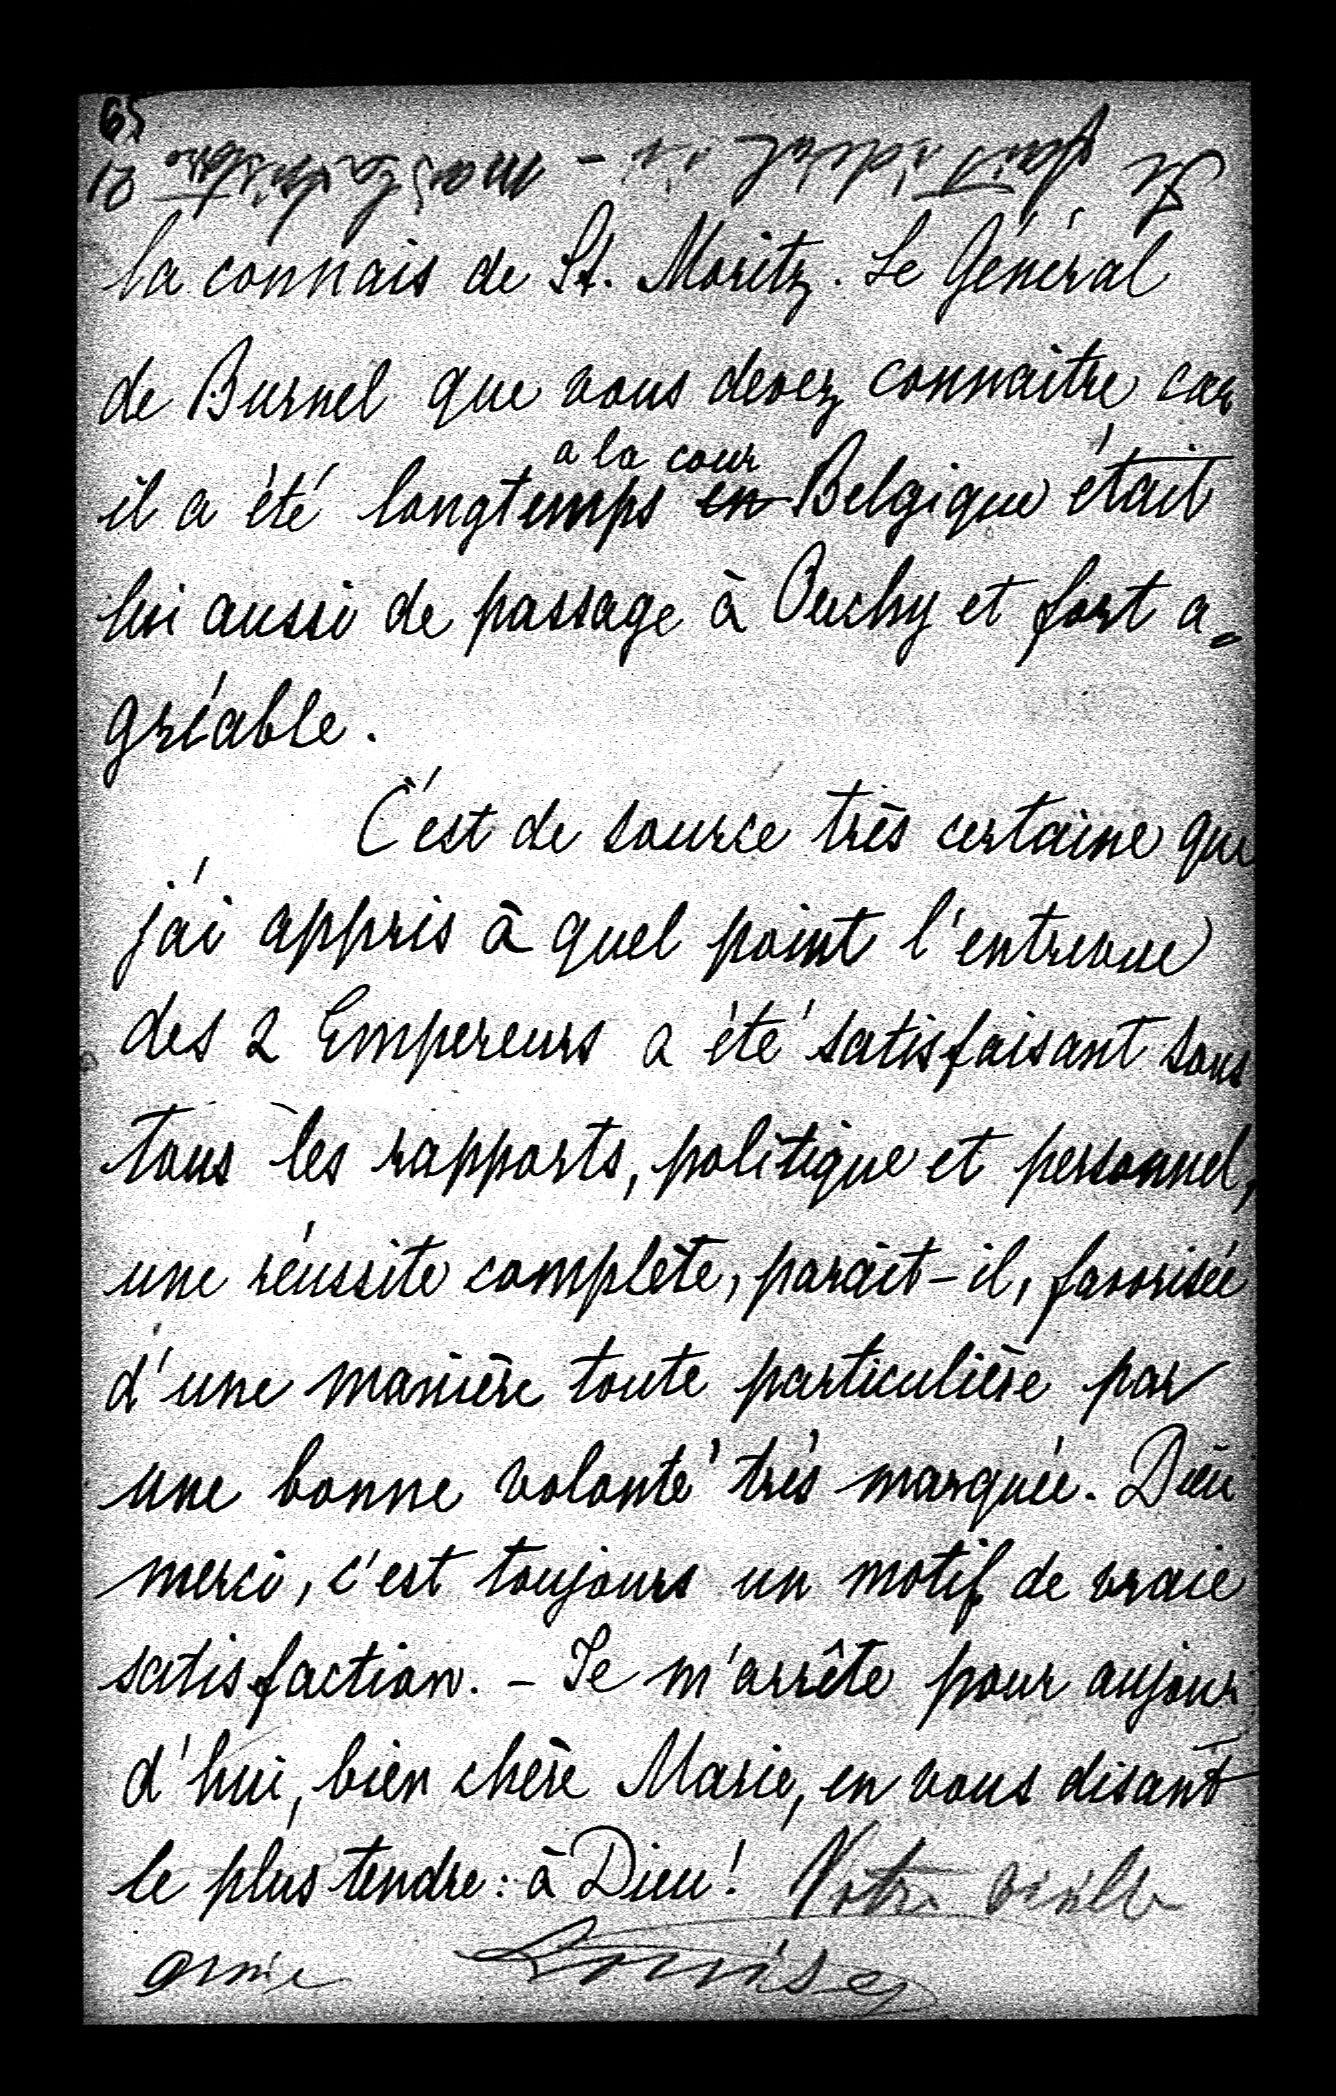 65
la connais de St. Moritz. Le Général
de Burnel que vous devez connaitre car
a la cour
il a été longtemps en Belgique était
lui aussi de passage à Ouchy et fort a=
gréable.
C'est de source très certaine que
j'ai appris à quel point l'entrevue
des 2 Empereurs a été satisfaisant sous
tous les rapports, politique et personnel,
une réussite complète, parait-il, favorisée
d'une manière toute particulière par
une bonne volonté très marquée. Dieu
merci, c'est toujours un motif de vraie
satisfaction. - Je m'arrête pour aujour
d'hui, bien chère Marie, en vous disant
le plus tendre: à Dieu! Votre vieille
amie Louise